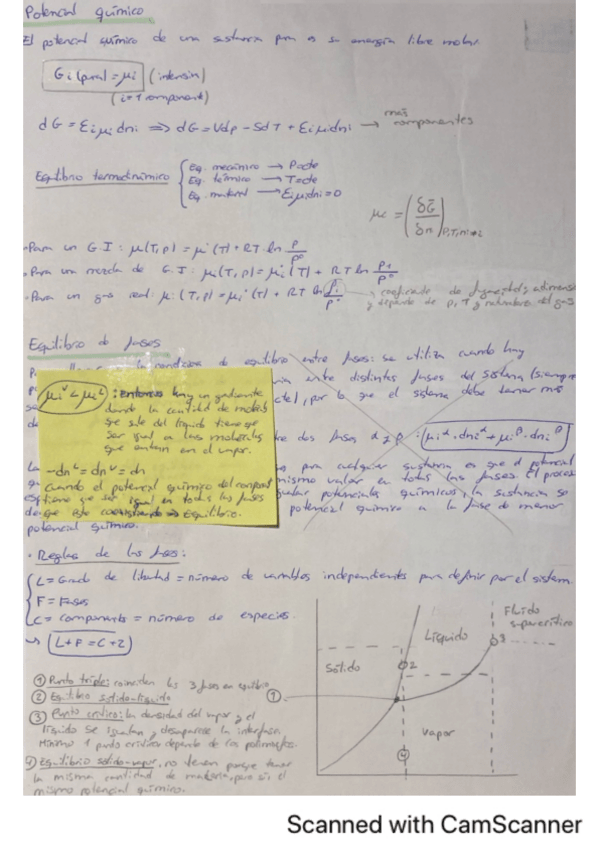 Potencial químico
El potencial químico de una sustancia pura es su energía libre molar.
Gi (pura) = μi (intensiva)
(i = 1 component)
dG = Σi μi dni ⟹ dG = Vdp - SdT + Σi μi dni → más componentes
Equilibrio termodinámico
Eq. mecánico → P=cte
Eq. térmico → T=cte
Eq. material → Σi μi dni = 0
μi = (δG/δn)
· Para un G.I: μ(T,P) = μ°(T) + RT ln P/P°
· Para una mezcla de G.I: μi(T,P) = μi°(T) + RT ln Pi/P°
· Para un gas real: μi(T,P) = μi°(T) + RT ln fi/P° → coeficiente de
y depende de P, T y naturaleza del gas
Equilibrio de fases
condición de equilibrio entre fases: se utiliza cuando hay
entre distintas fases del sistema (siempre
por lo que el sistema debe tener más
dos fases α y β: μiα·dniα + μiβ·dniβ
para cualquier sustancia es que el potencial
mismo valor en todas las fases. El proceso
potenciales químicos, la sustancia se
potencial químico a la fase de menor
potencial químico.
μiv < μiL : Entonces hay un gradiente
donde la cantidad de moléculas
que sale del líquido tiene que
ser igual a las moléculas
que entran en el vapor.
-dnL = dnv = dn
cuando el potencial químico del component
tiene que ser igual en todas las fases
Equilibrio.
· Reglas de las fases:
L = Grado de libertad = número de variables independientes para definir por el sistem.
F = Fases
C = componente = número de especies.
↳ L+F = C+2
① Punto triple: coinciden las 3 fases en equilibrio
② Equilibrio sólido-líquido
③ Punto crítico: la densidad del vapor y el
líquido se igualan y desaparece la interfase
Mínimo 1 punto crítico depende de los polimorfos.
④ Equilibrio sólido-vapor, no tienen porque tener
la misma cantidad de materia, pero sí el
mismo potencial químico.
Sólido
Líquido
Fluido
supercrítico
Vapor
①
2
3
4
Scanned with CamScanner